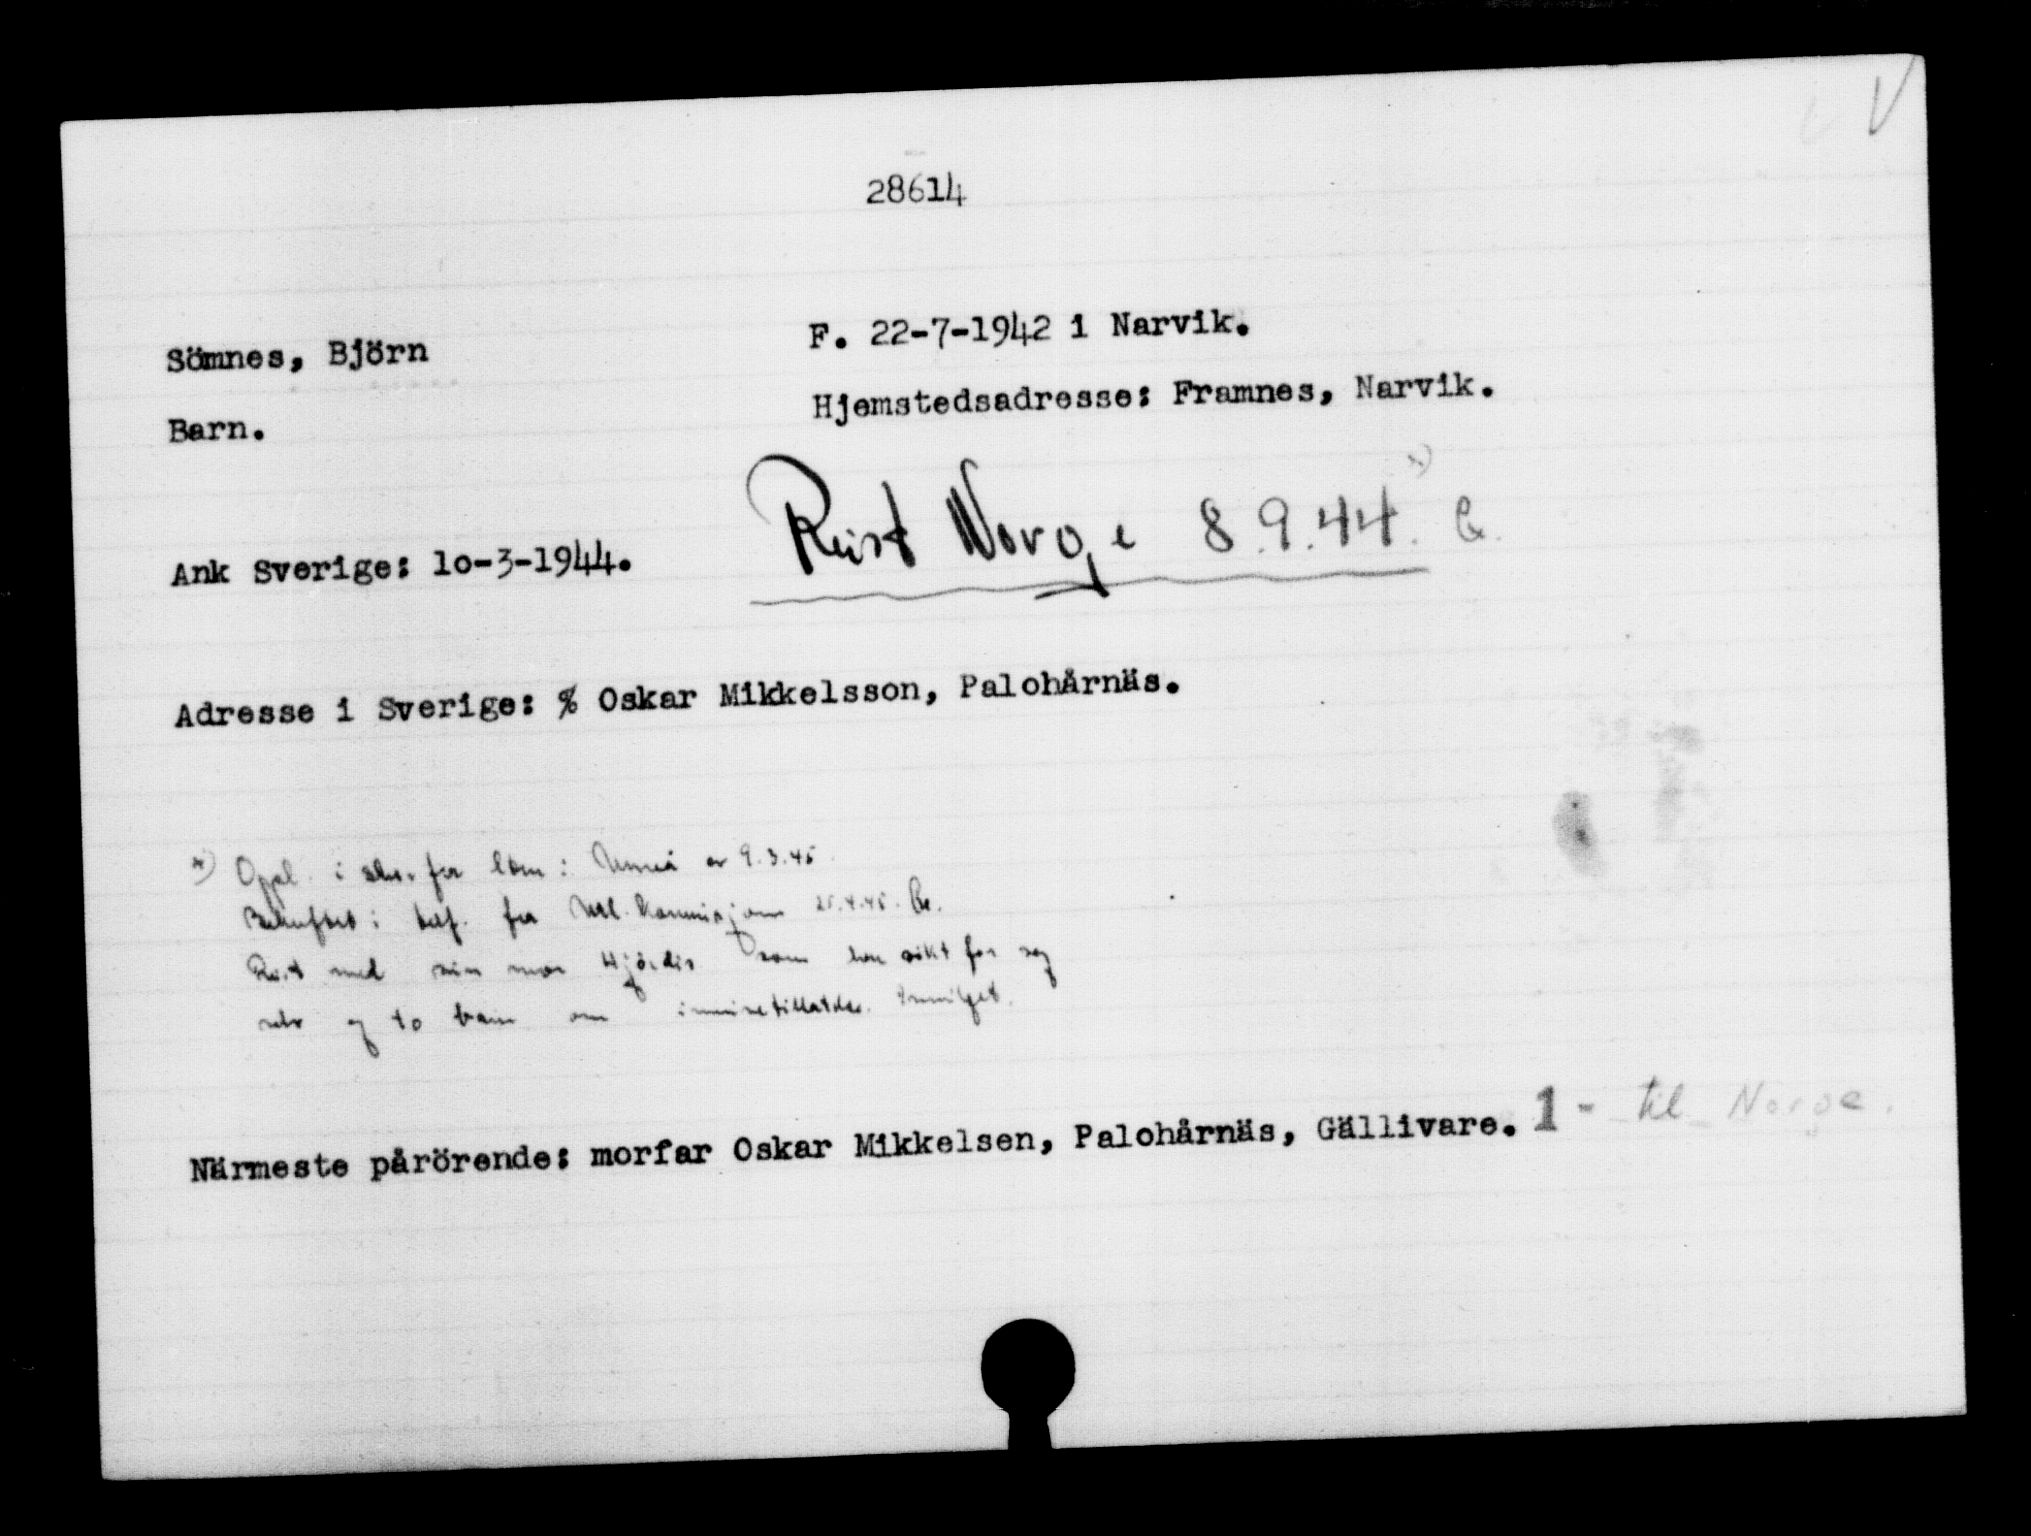 V
28614
Sömnes, Björn
F. 22-7-1942 i Narvik.
Barn.
Hjemstedsadresse: Framnes, Narvik.
Reist Norge 8.9.44. x)
Ank Sverige: lo-3-1944.
Adresse i Sverige: % Oskar Mikkelsson, Palohårnäs.
x) Oppl. i skr. fra lkm: Umeå av 9.3.45.
Bekreftet i fra Utl. Kommisjonen 25.4.45.
Reist med sin mor Hjördis som har sökt for seg
selv og to barn om innreisetillatelse. Innvilget.
Närmeste pårörende: morfar Oskar Mikkelsen, Palohårnäs, Gällivare. 1 - til Norge.